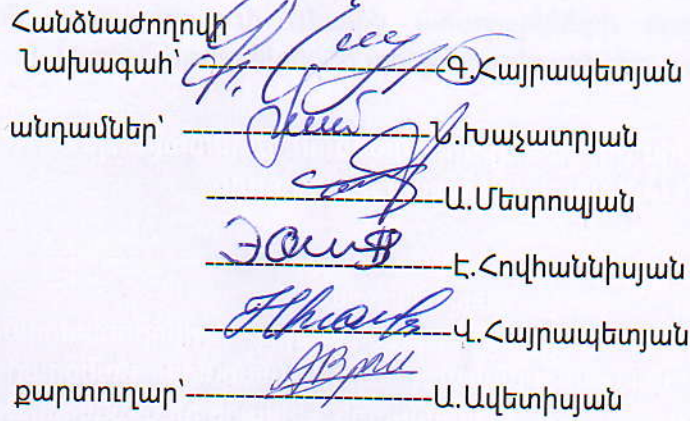 Հանձնաժողովի
Նախագահ՝ ----------------------Գ.Հայրապետյան
անդամներ՝ ----------------------Ն.Խաչատրյան
----------------------Ա.Մեսրոպյան
----------------------Է.Հովհաննիսյան
----------------------Վ.Հայրապետյան
քարտուղար՝----------------------Ա.Ավետիսյան